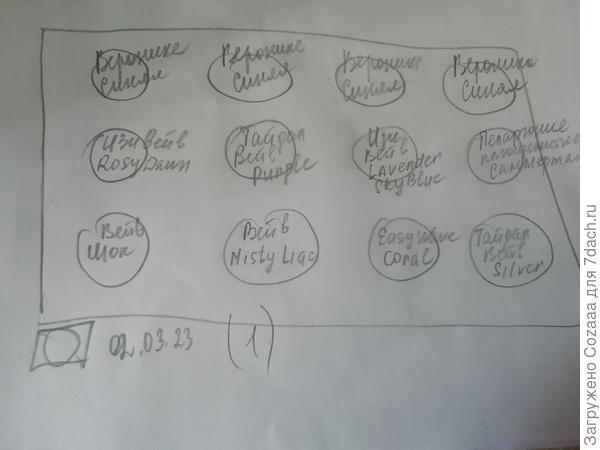 Вероника
Синяя
Вероника
Синяя
Вероника
Синяя
Вероника
Синяя
Изи Вейв
Rosy Dawn
Тайдал
Вейв
Purple
Изи
Вейв
Lavender
SkyBlue
Пеларгония
плющелистная
Саммертайм
Вейв
Шок
Вейв
Misty Lilac
Easy Wave
Coral
Тайдал
Вейв
Silver
02.03.23 (1)
Загружено Cozaaa для 7dach.ru